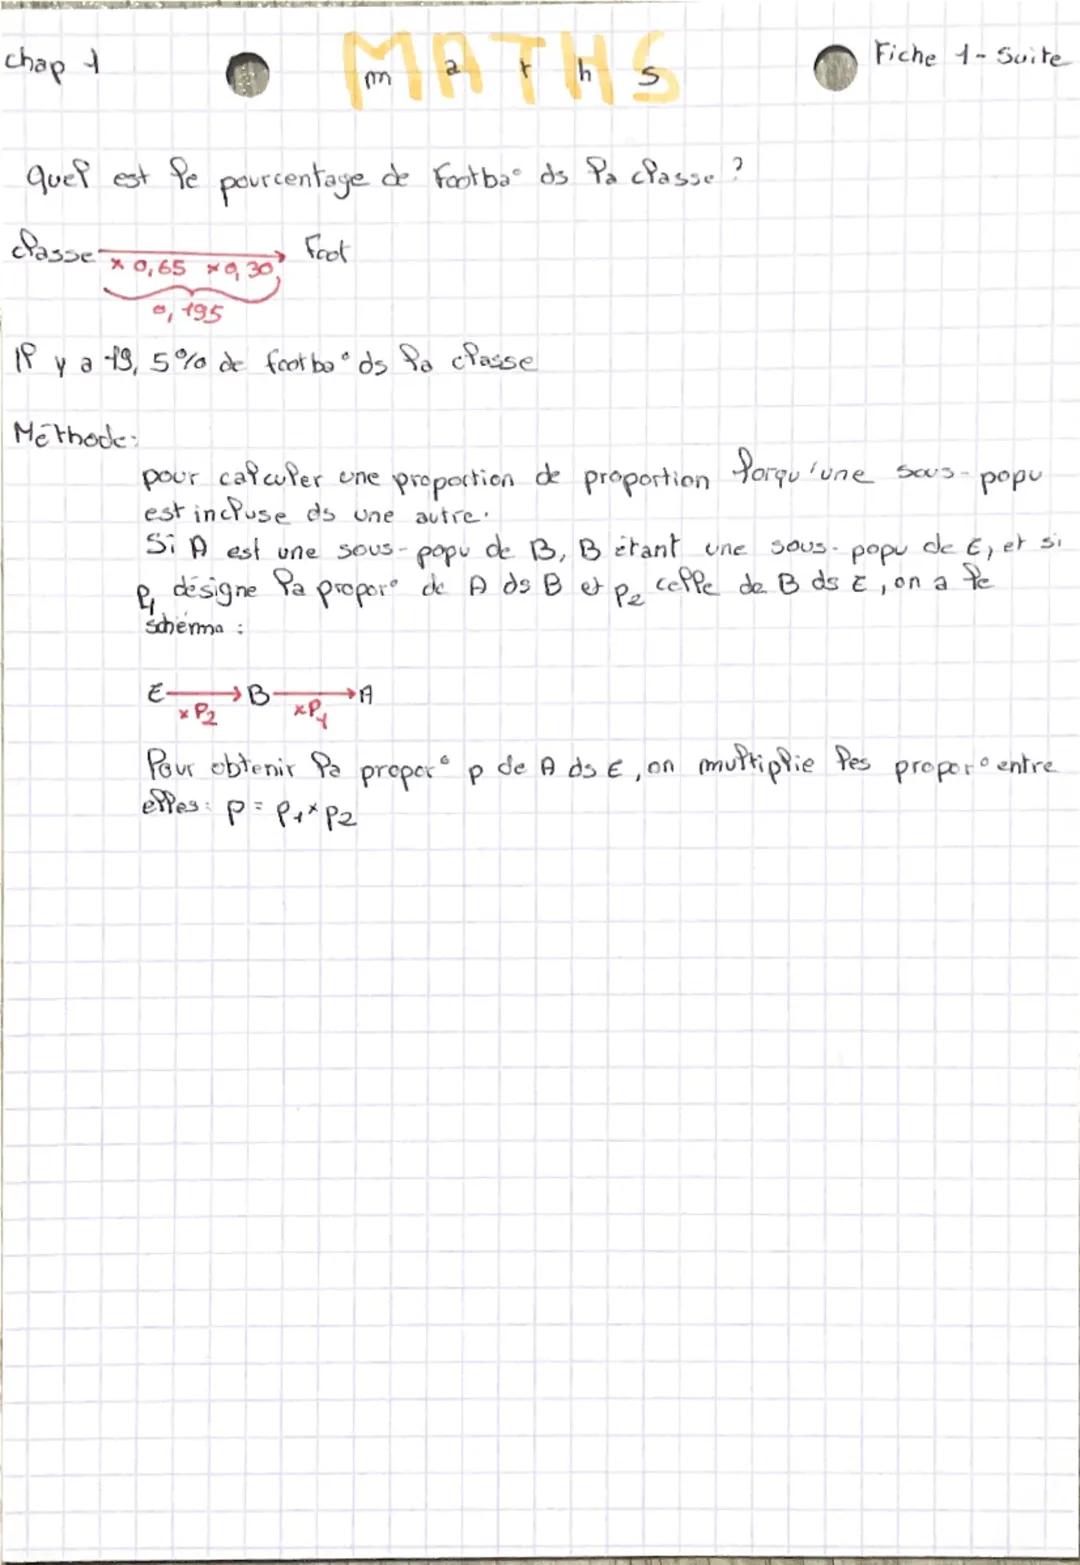 chap 1
MATHS
maths
Fiche 1 - Suite
Quel est le pourcentage de Footba° ds la classe ?
classe → Foot
× 0,65 × 0,30
0,195
Il y a 19,5% de footba° ds la classe
Méthode :
pour calculer une proportion de proportion lorqu'une sous-popu
est incluse ds une autre.
Si A est une sous-popu de B, B étant une sous-popu de E, et si
P1 désigne la propor° de A ds B et P2 celle de B ds E, on a le
schéma :
E → B → A
×P2 ×P1
Pour obtenir la propor° p de A ds E, on multiplie les propor° entre
elles : p = P1 × P2